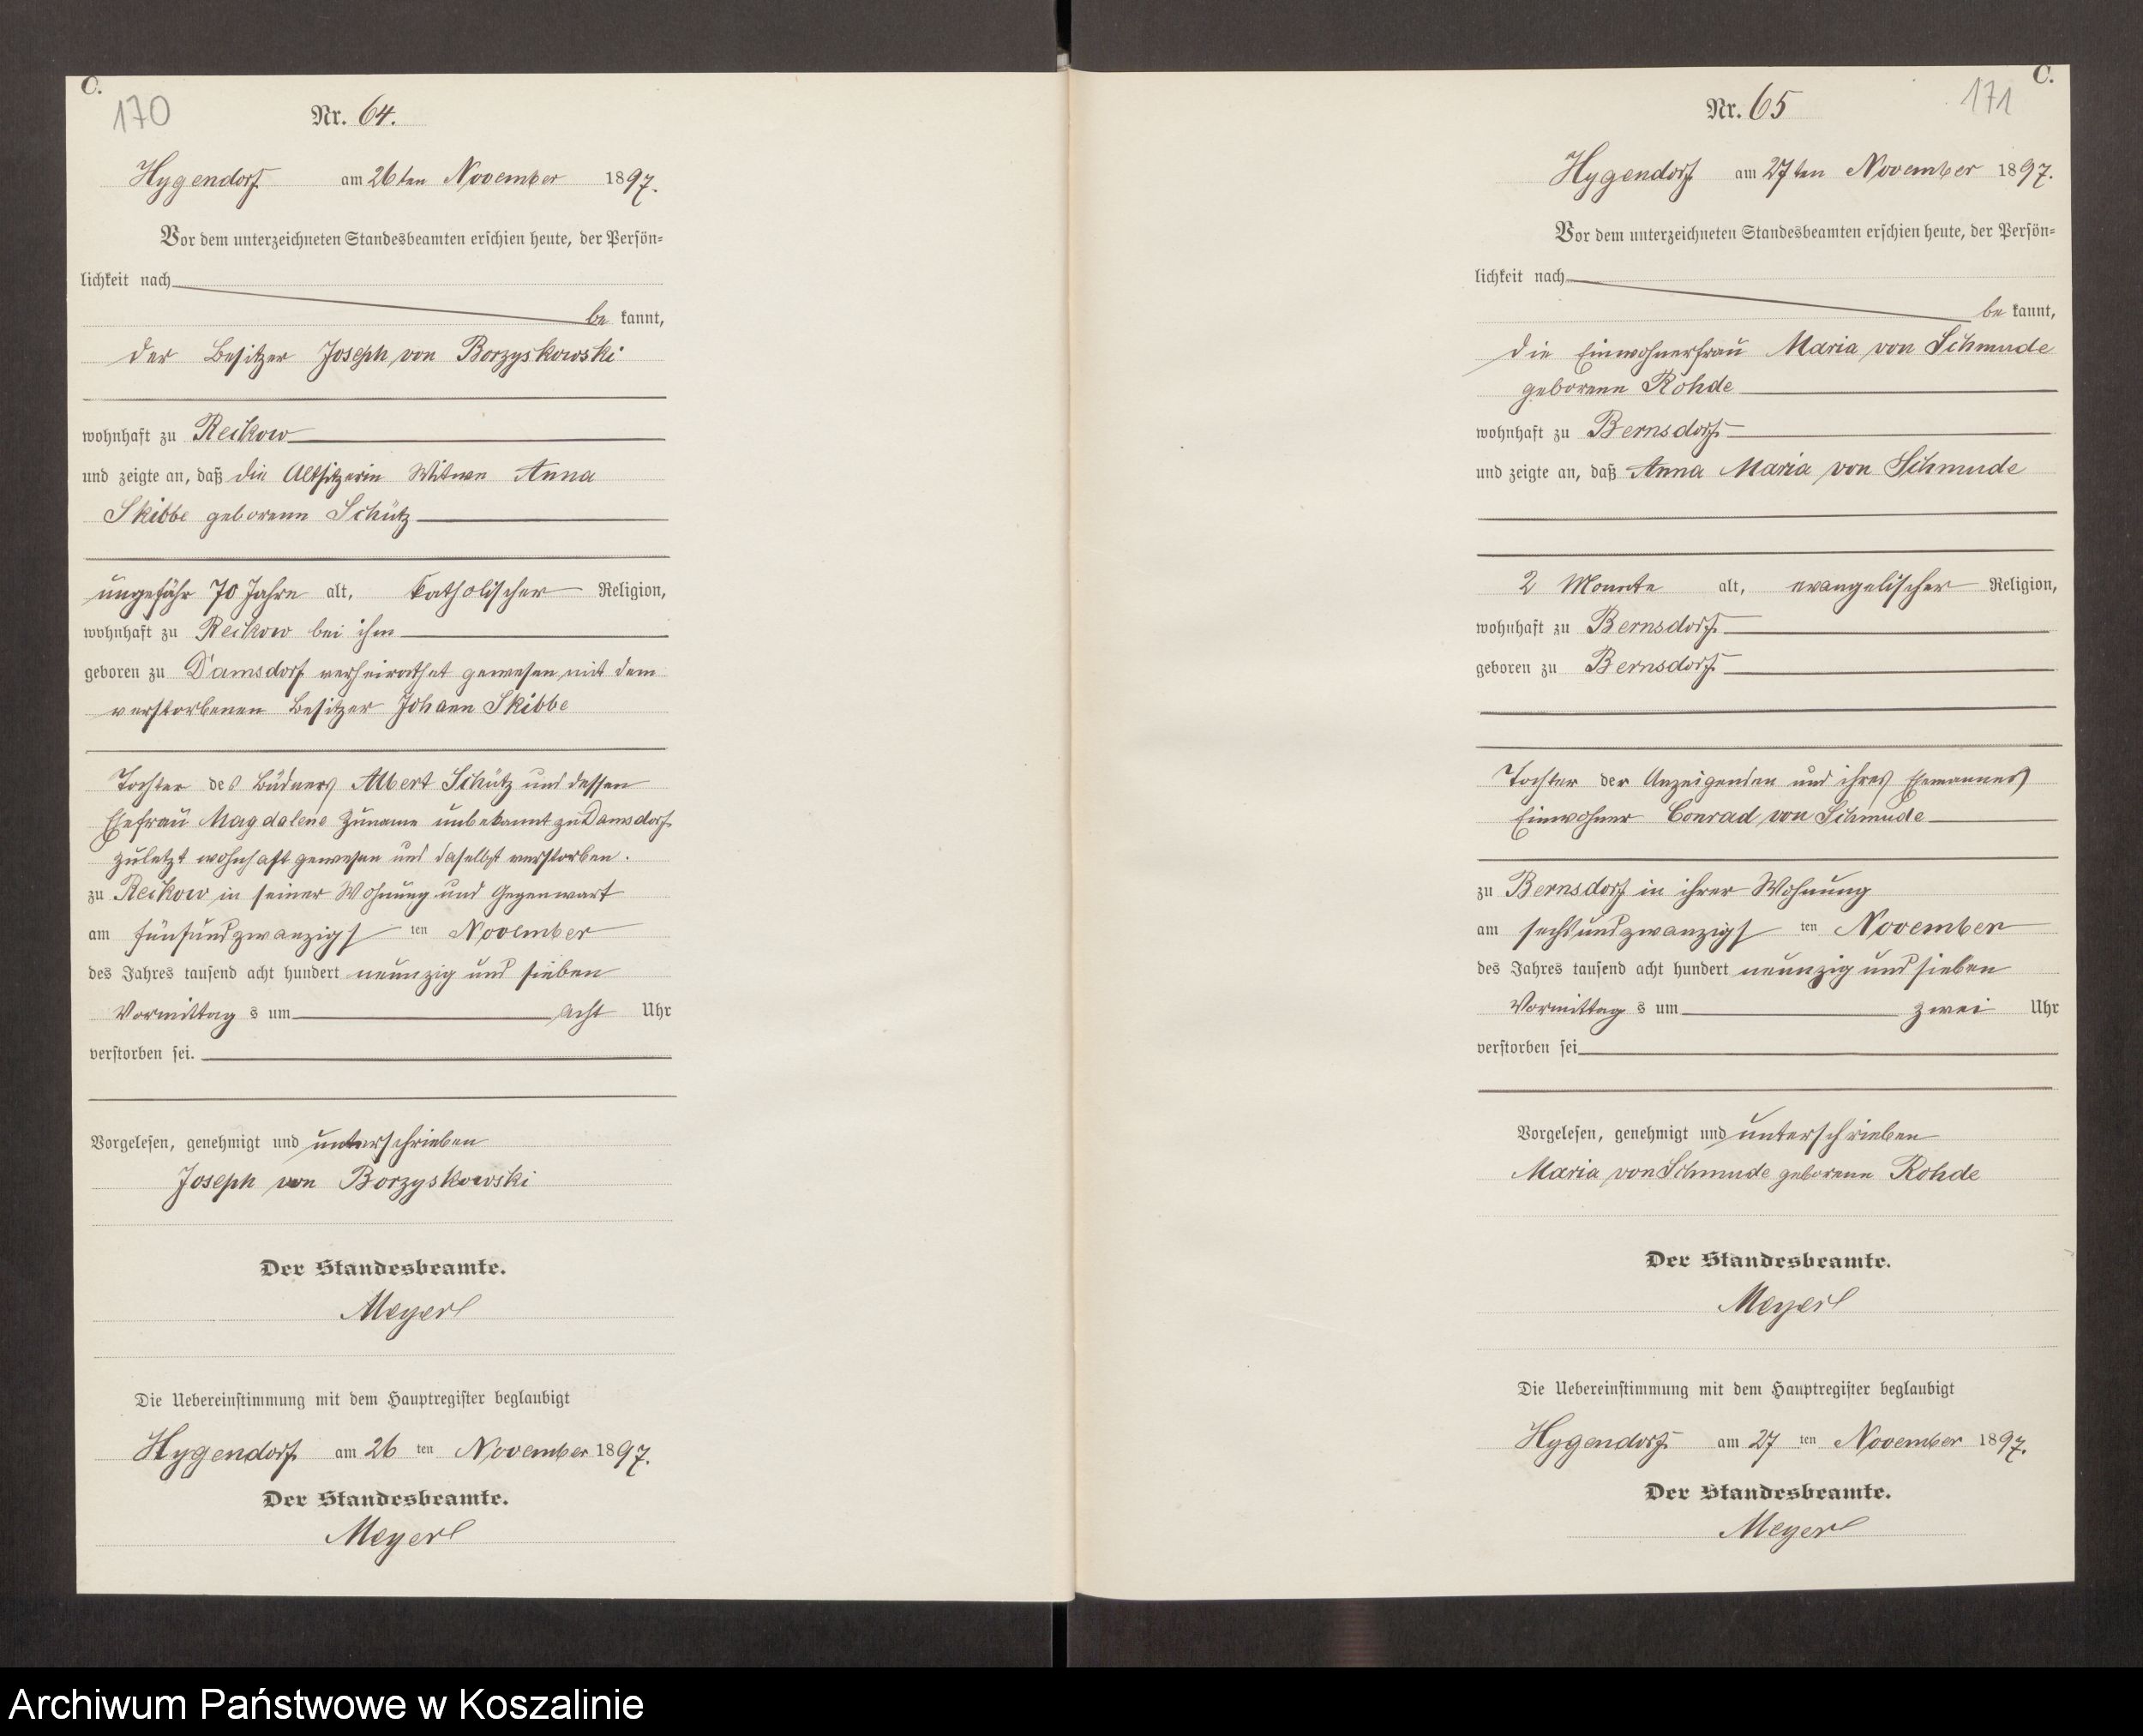 C.
170
Nr. 64.
Hygendorf am 26ten November 1897.
Vor dem unterzeichneten Standesbeamten erschien heute, der Persön=
lichkeit nach
be kannt,
der Besitzer Joseph von Borzyskowski
wohnhaft zu Reckow
und zeigte an, daß die Altsitzerin Witwe Anna
Skibbe geborene Schütz
ungefähr 70 Jahre alt, katholischer Religion,
wohnhaft zu Reckow bei ihm
geboren zu Damsdorf verheirathet gewesen mit dem
verstorbenen Besitzer Johann Skibbe
Tochter des Büdners Albert Schütz und dessen
Ehefrau Magdalene Zuname unbekannt zu Damsdorf
zuletzt wohnhaft gewesen und daselbst verstorben.
zu Reckow in seiner Wohnung und Gegenwart
am fünfundzwanzigs ten November
des Jahres tausend acht hundert neunzig und sieben
Vormittag s um acht Uhr
verstorben sei.
Vorgelesen, genehmigt und unterschrieben
Joseph von Borzyskowski
Der Standesbeamte.
Meyerl
Die Uebereinstimmung mit dem Hauptregister beglaubigt
Hygendorf am 26 ten November 1897.
Der Standesbeamte.
Meyerl
C.
171
Nr. 65
Hygendorf am 27ten November 1897.
Vor dem unterzeichneten Standesbeamten erschien heute, der Persön=
lichkeit nach
be kannt,
die Einwohnerfrau Maria von Schmude
geborene Rohde
wohnhaft zu Bernsdorf
und zeigte an, daß Anna Maria von Schmude
2 Monate alt, evangelischer Religion,
wohnhaft zu Bernsdorf
geboren zu Bernsdorf
Tochter der Anzeigenden und ihres Ehemannes
Einwohner Conrad von Schmude
zu Bernsdorf in ihrer Wohnung
am sechsundzwanzigs ten November
des Jahres tausend acht hundert neunzig und sieben
Vormittag s um zwei Uhr
verstorben sei
Vorgelesen, genehmigt und unterschrieben
Maria von Schmude geborene Rohde
Der Standesbeamte.
Meyerl
Die Uebereinstimmung mit dem Hauptregister beglaubigt
Hygendorf am 27 ten November 1897.
Der Standesbeamte.
Meyerl
Archiwum Państwowe w Koszalinie